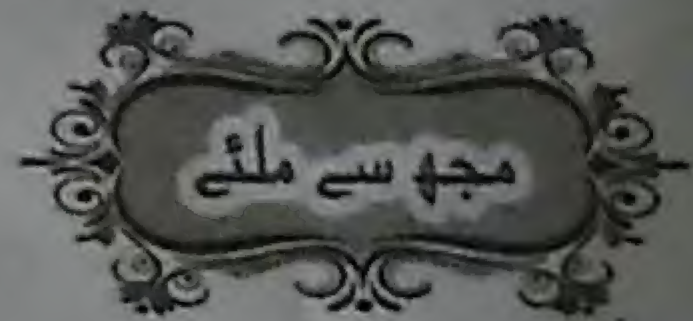 مجھ سے ملئے